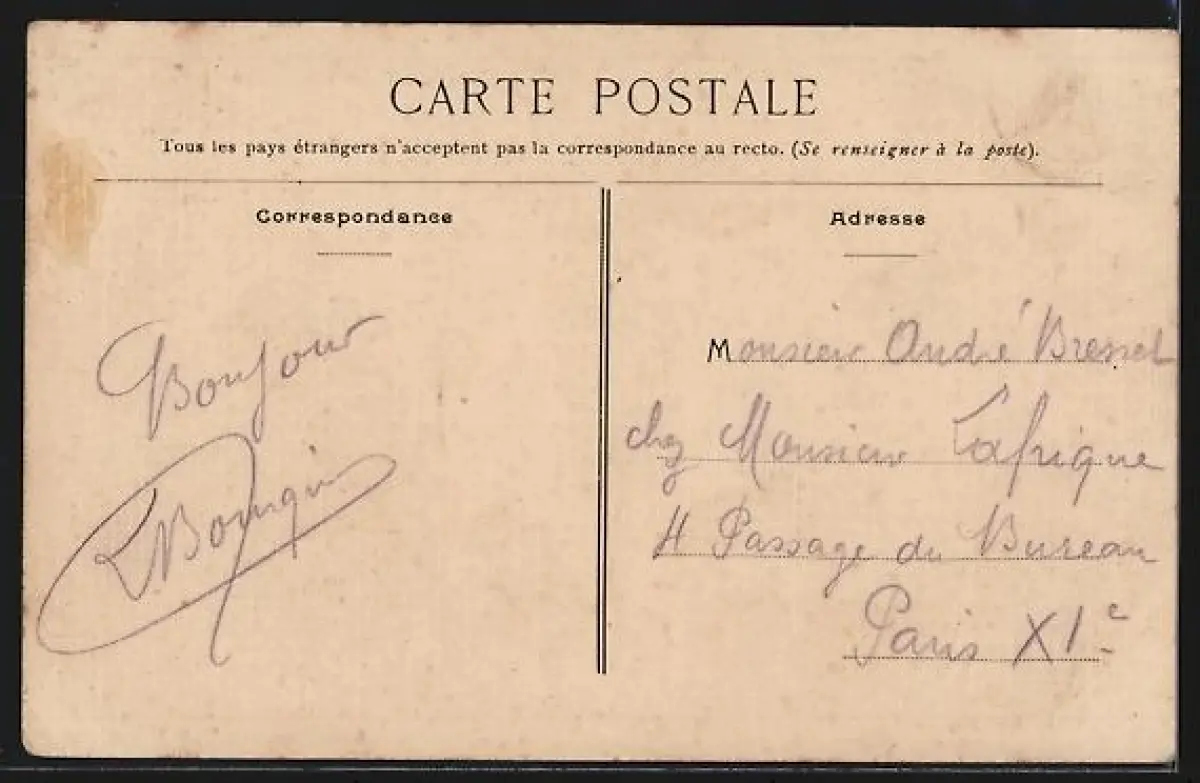 CARTE POSTALE
Tous les pays étrangers n'acceptent pas la correspondance au recto. (Se renseigner à la poste).
Correspondance
Adresse
Bonjour
Monsieur André Bressel
chez Monsieur Lafrique
4 Passage du Bureau
Paris XIe